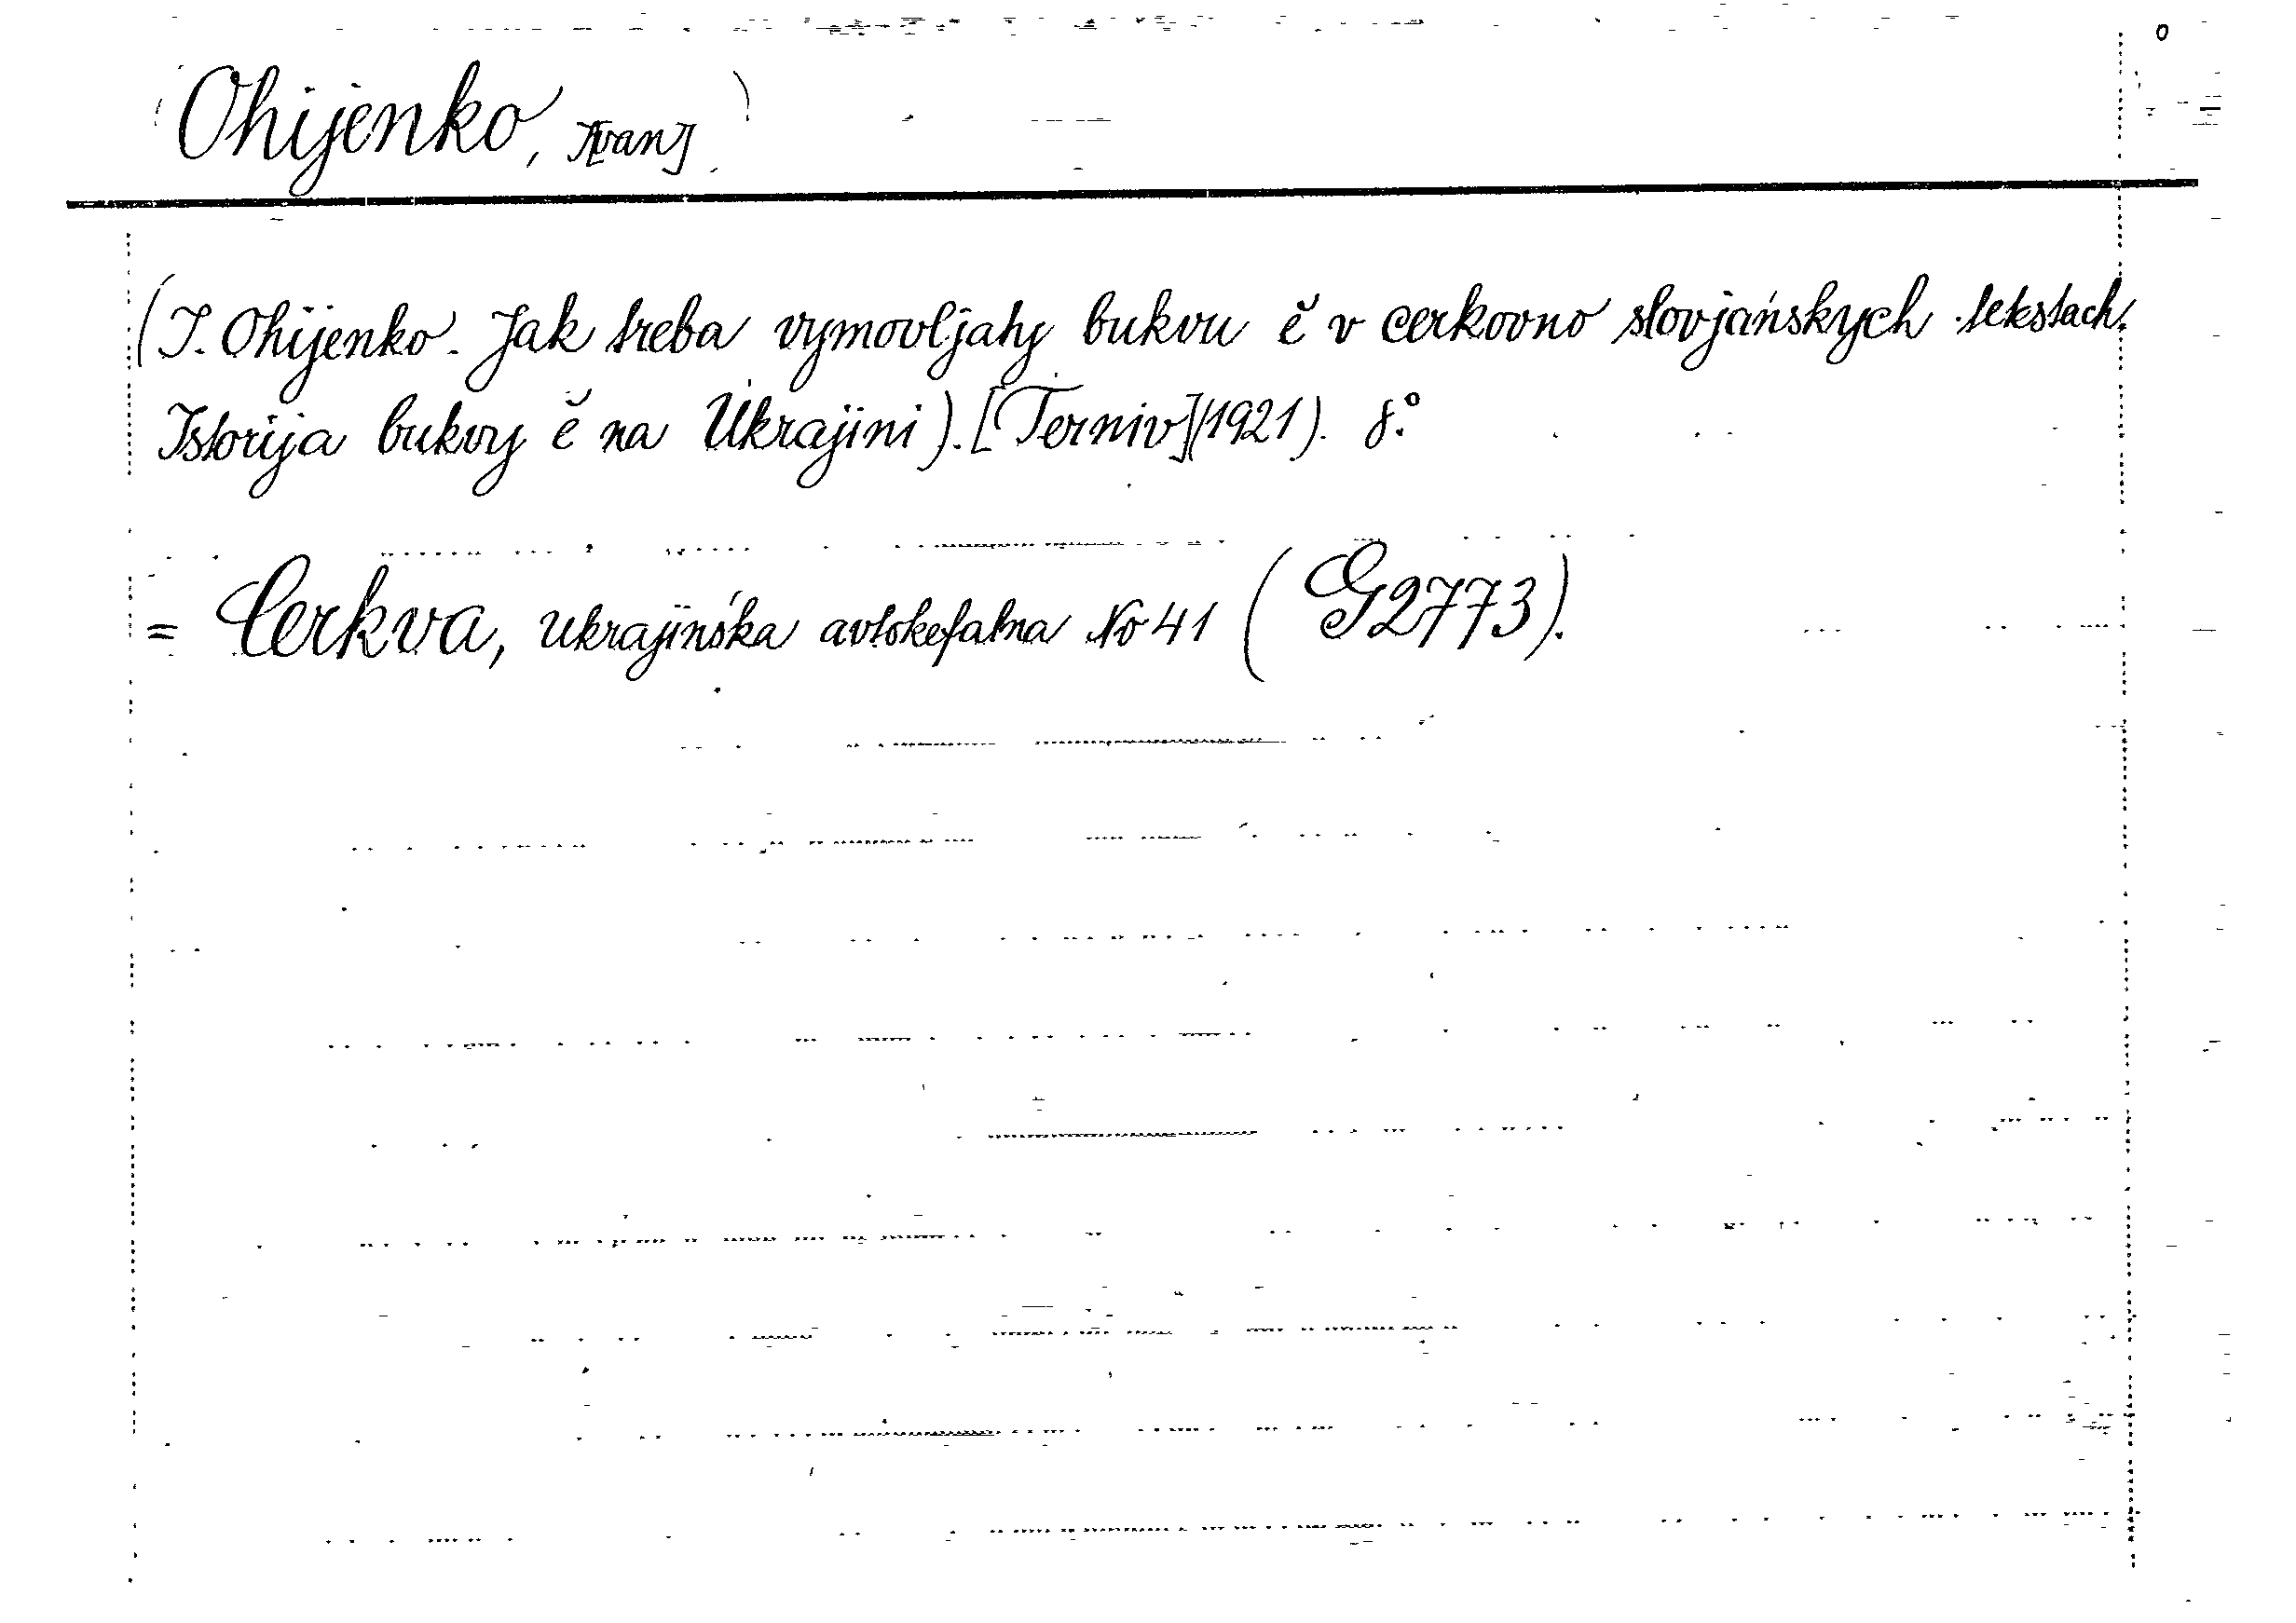 Ohijenko, I[van]
(I. Ohijenko. Jak treba vymovljaty bukvu ě v cerkovno slovjańskych tekstach.
Istorija bukvy ě na Ukrajini). [Terniv] (1921). 8.°
= Cerkva, ukrajinśka avtokefalna No 41 (G2773).